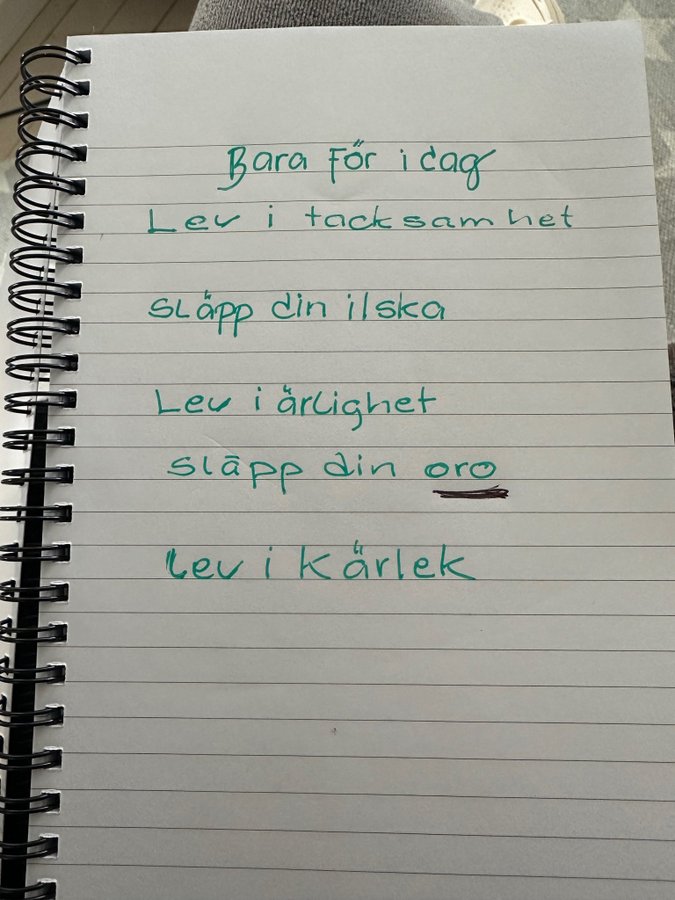 Bara För i dag
Lev i tacksamhet
släpp din ilska
Lev i ärlighet
släpp din oro
Lev i Kärlek